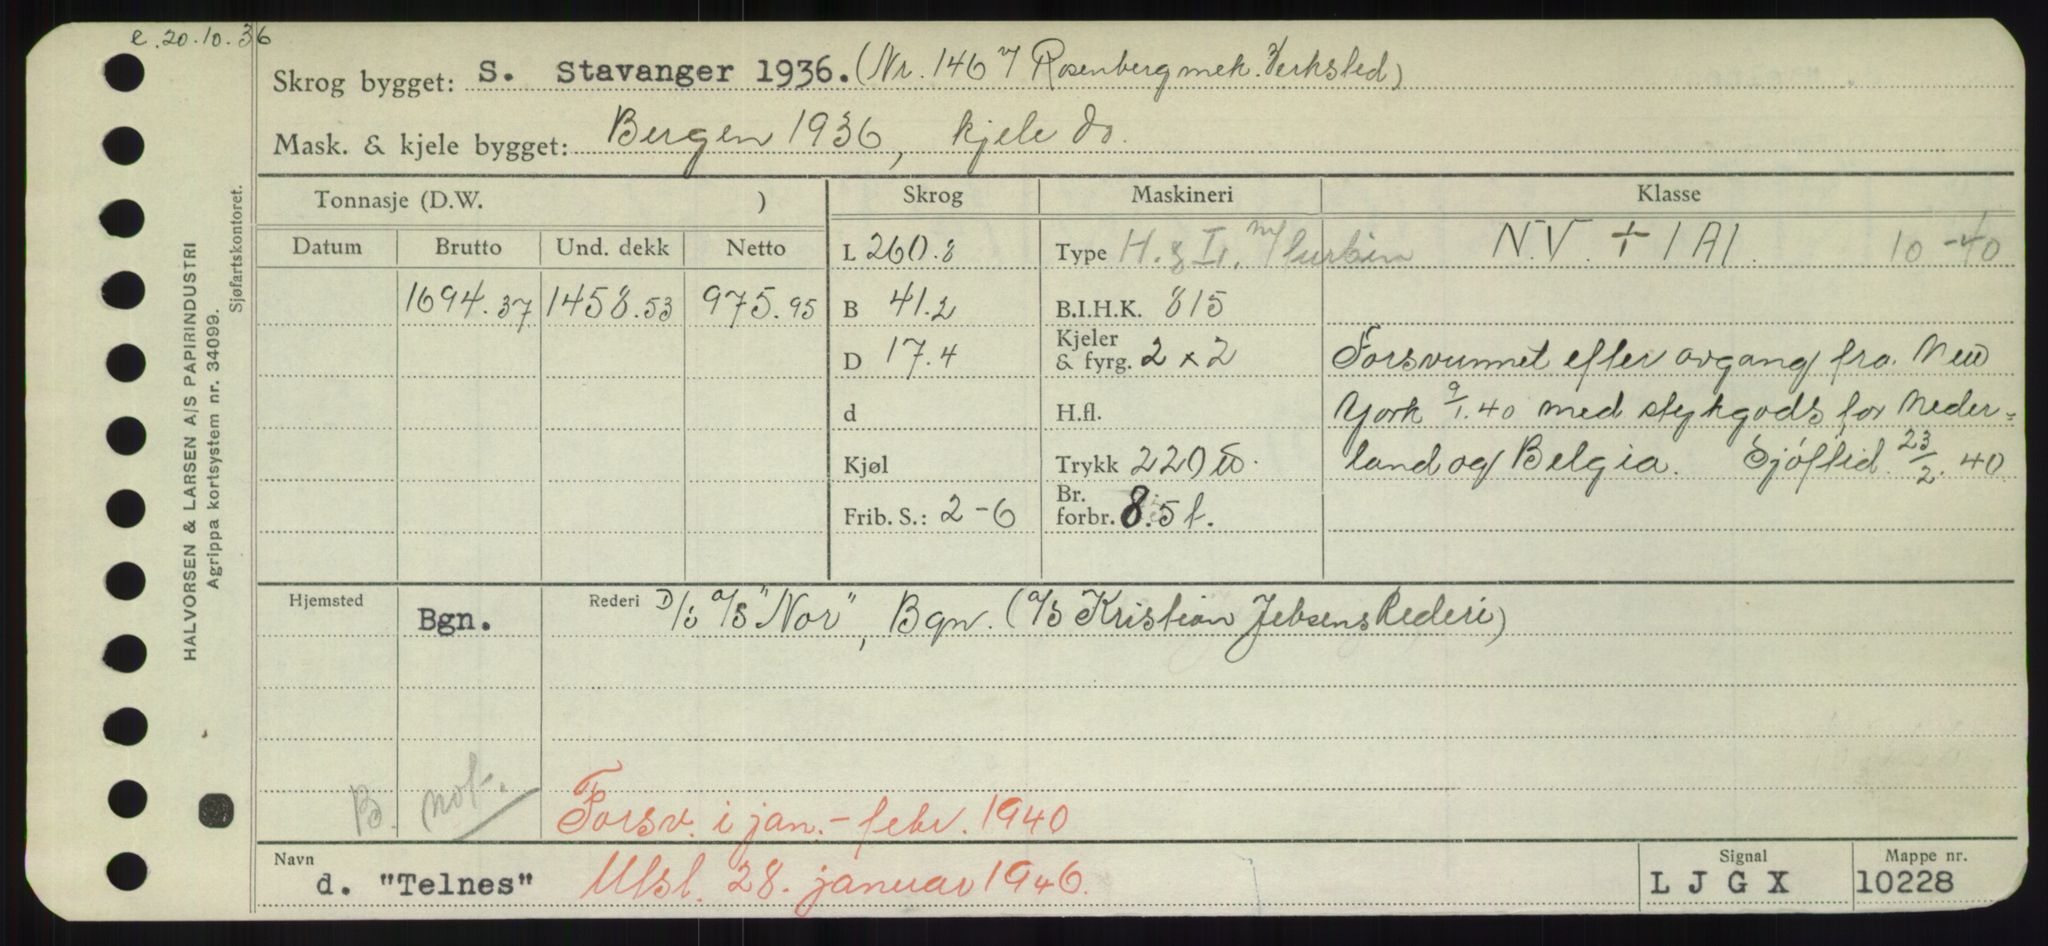 e. 20.10.36
Skrog bygget: S. Stavanger 1936. (Nr. 146 v/ Rosenberg mek. Verksted)
Mask. & kjele bygget: Bergen 1936, kjele do.
Tonnasje (D.W. ) Skrog Maskineri Klasse
Datum Brutto Und. dekk Netto L 260.8 Type H. & Tr. m/turbin N.V. + 1A1. 10-40
1694.37 1458.53 975.95 B 41.2 B.I.H.K. 815
D 17.4 Kjeler & fyrg. 2 x 2 Forsvunnet efter avgang fra New
d H.fl. York 9/1.40 med stykgods for Neder=
Kjøl Trykk 220 land og Belgia. Sjøftid. 23/2.40
Frib. S.: 2-6 Br. forbr. 8.5 t.
Hjemsted Bgn. Rederi D/S A/S "Nor", Bgn. (A/S Kristian Jebsens Rederi)
B. not.
Forsv. i jan.-febr. 1940
Navn d. "Telnes" Utsl. 28. januar 1946. Signal LJGX Mappe nr. 10228
HALVORSEN & LARSEN A/S PAPIRINDUSTRI
Agrippa kortsystem nr. 34099.
Sjøfartskontoret.